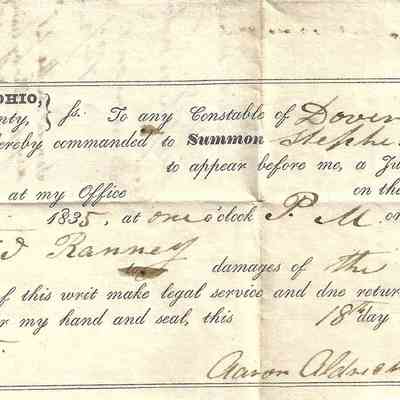 OHIO,
nty, } ss. To any Constable of Dover
hereby commanded to Summon Stephe
to appear before me, a Ju
at my Office on the
1835, at one o'clock P. M. o
d Ranney
damages of the
of this writ make legal service and dne retur
r my hand and seal, this 18th day
Aaron Aldrich